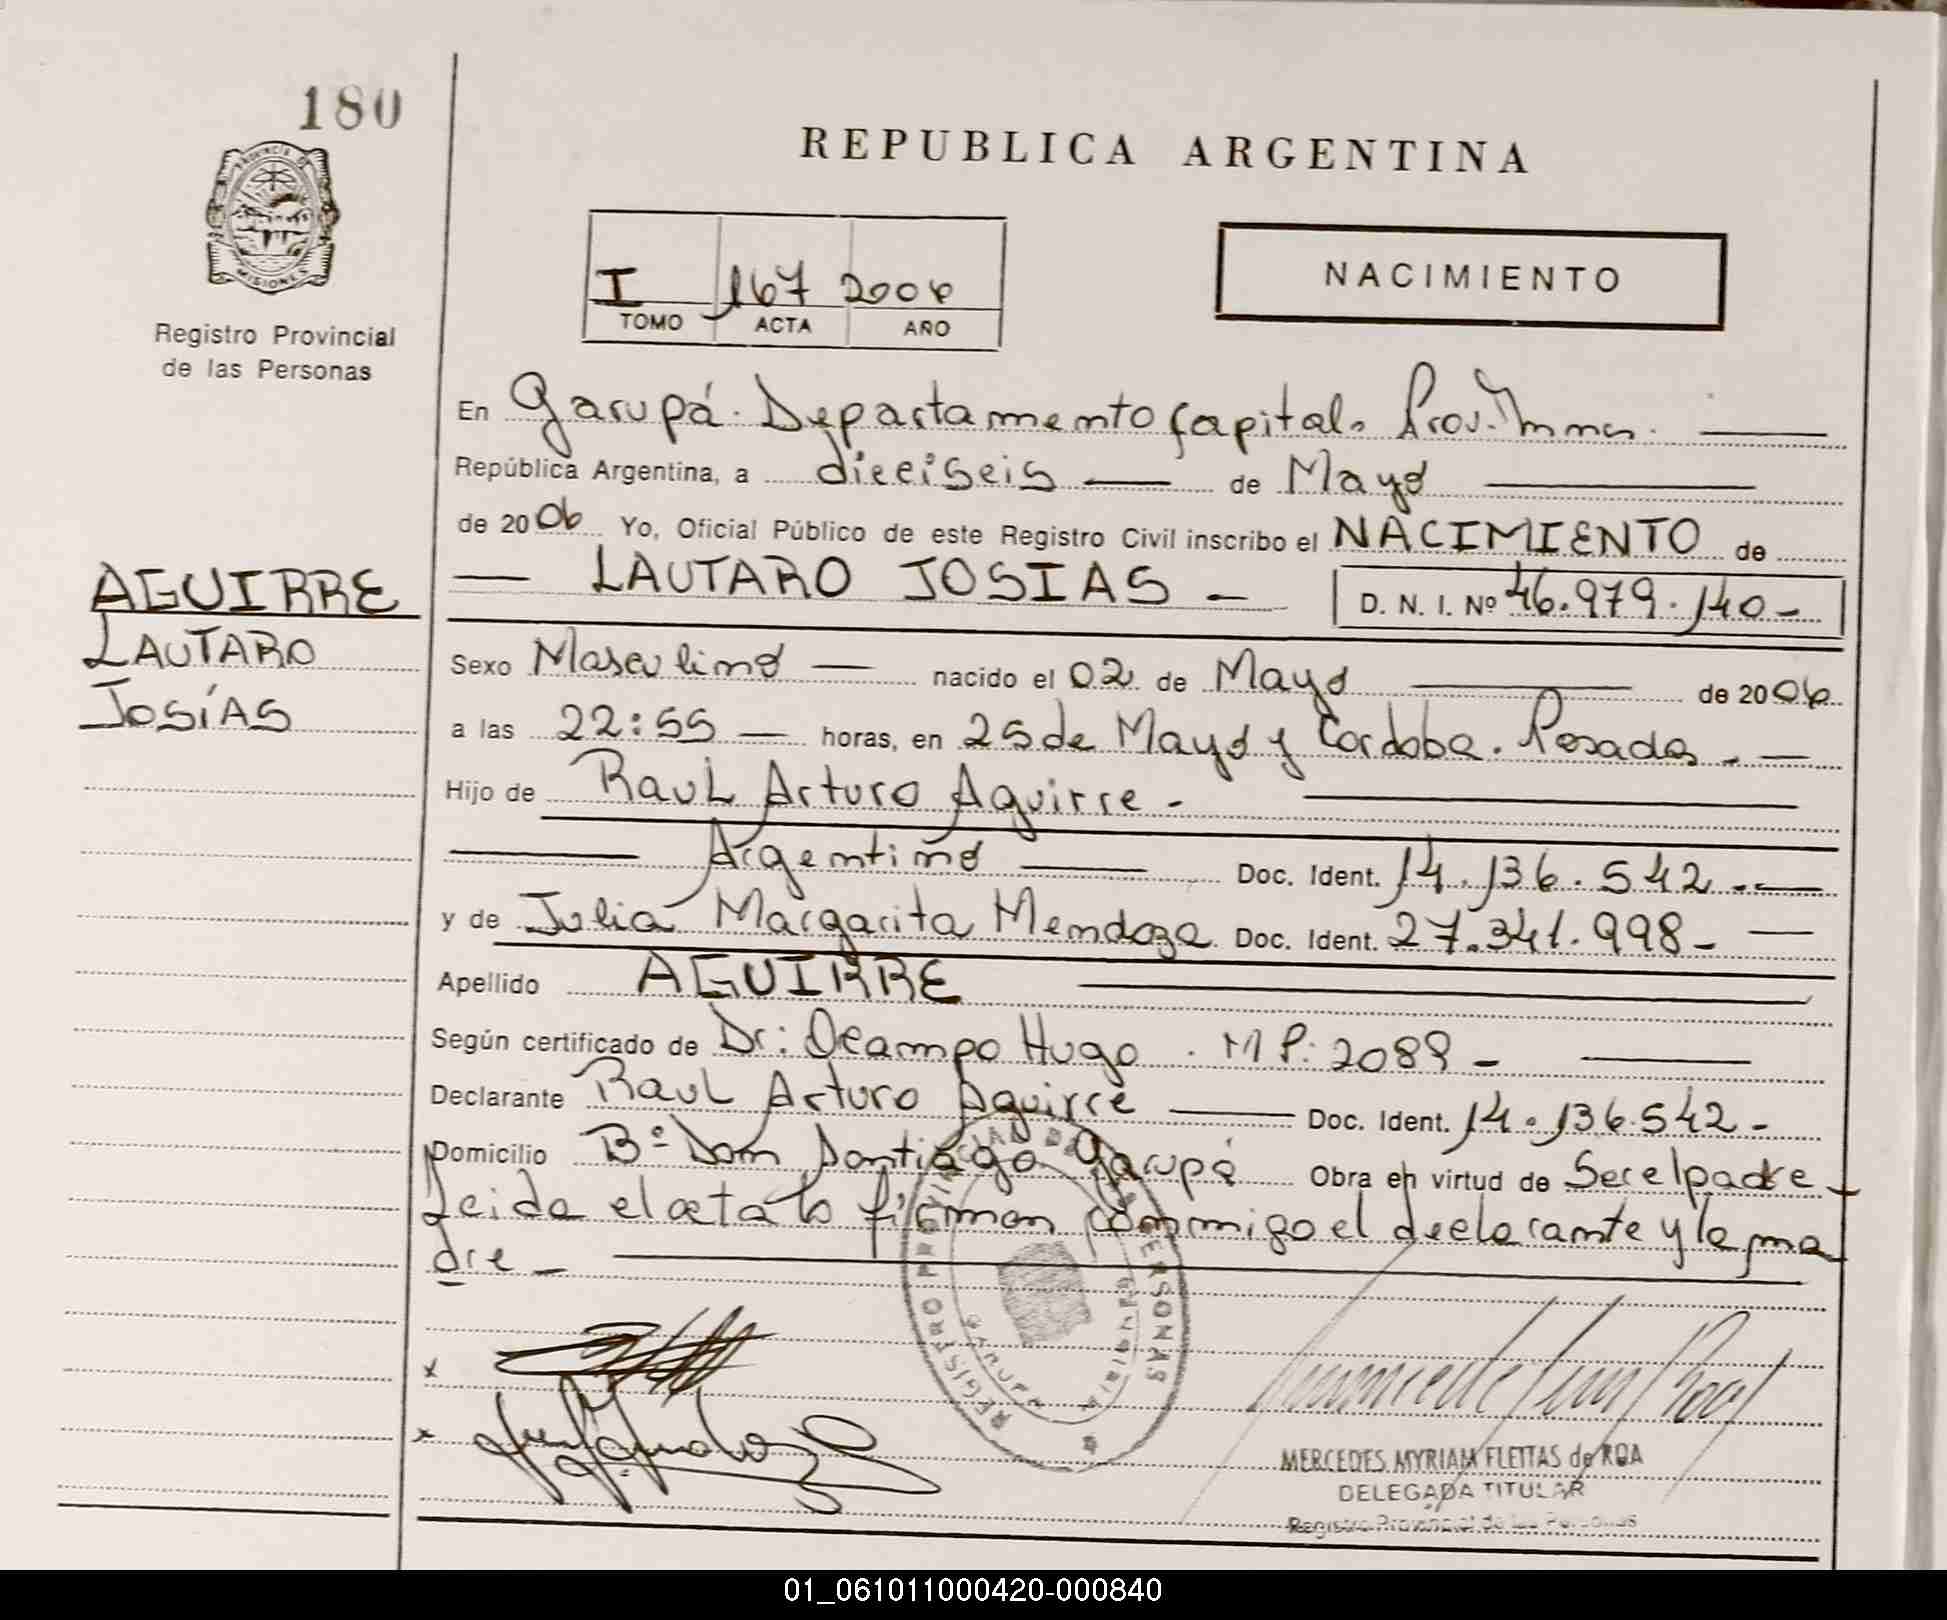 180
REPUBLICA ARGENTINA
PROVINCIA DE MISIONES
Registro Provincial
de las Personas
I 167 2006
TOMO ACTA AÑO
NACIMIENTO
En Garupá. Departamento Capital. Prov. Mnes.
República Argentina, a dieciseis de Mayo
de 2006 Yo, Oficial Público de este Registro Civil inscribo el NACIMIENTO de
LAUTARO JOSIAS - D. N. I. Nº 46.979.140-
AGUIRRE
LAUTARO
JOSÍAS
Sexo Masculino nacido el 02 de Mayo de 2006
a las 22:55 horas, en 25 de Mayo y Cordoba. Posadas.
Hijo de Raul Arturo Aguirre -
Argentino Doc. Ident. 14.136.542.-
y de Julia Margarita Mendoza Doc. Ident. 27.341.998-
Apellido AGUIRRE
Según certificado de Dr: Ocampo Hugo. MP: 2089-
Declarante Raul Arturo Aguirre Doc. Ident. 14.136.542-
Domicilio Bº Don Santiago Garupá Obra en virtud de Ser el padre
Leida el acta la firman conmigo el declarante y la ma
dre -
REGISTRO PROVINCIAL DE LAS PERSONAS
GARUPA
MERCEDES MYRIAM FLEITAS de ROA
DELEGADA TITULAR
Registro Provincial de las Personas
01_061011000420-000840